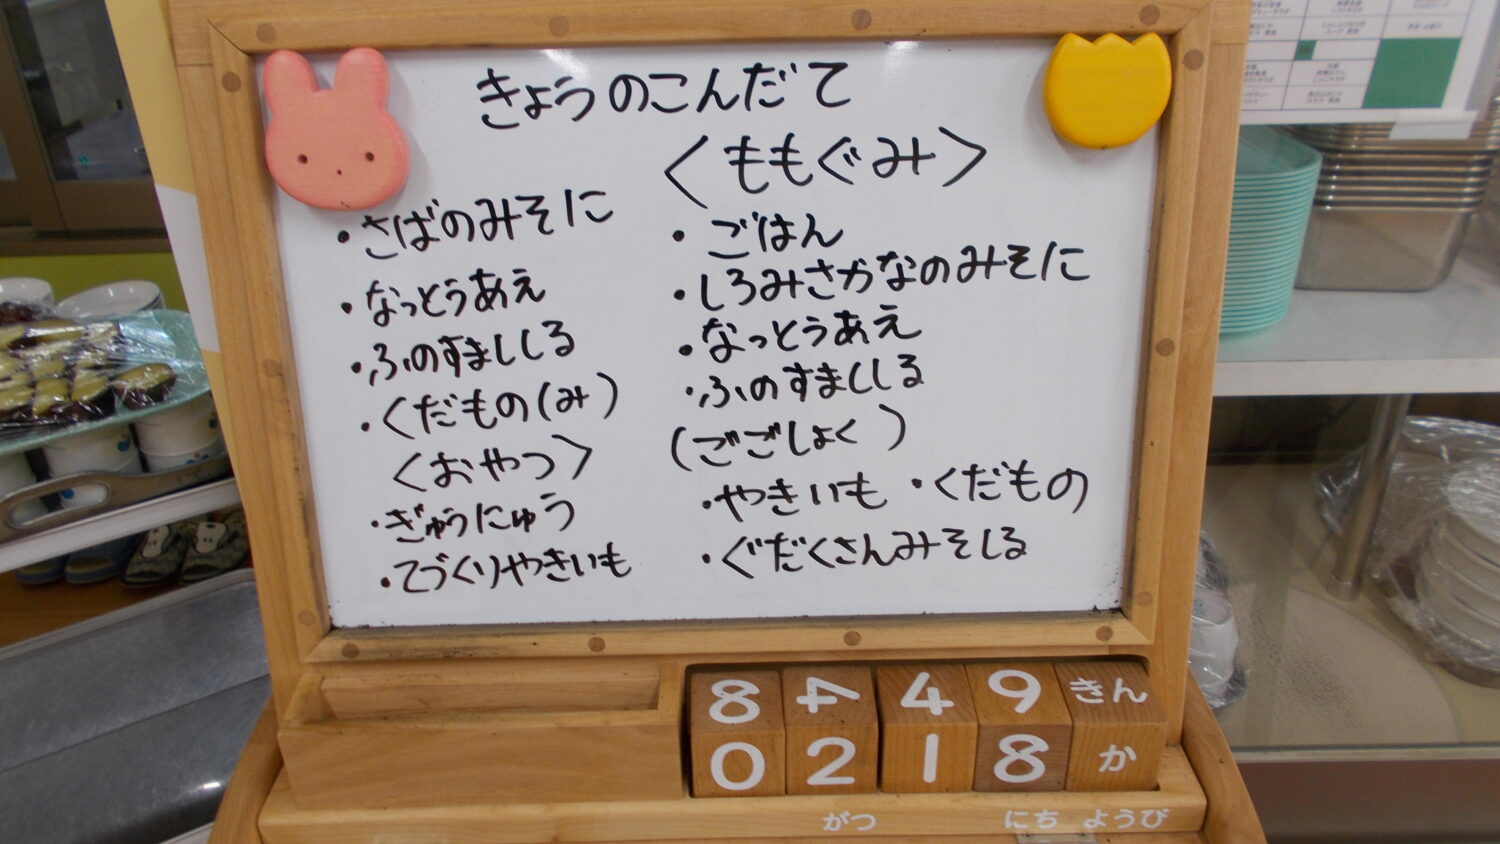 きょうのこんだて
・さばのみそに
・なっとうあえ
・ふのすましじる
・くだもの(み)
<おやつ>
・ぎゅうにゅう
・てづくりやきいも
<ももぐみ>
・ごはん
・しろみさかなのみそに
・なっとうあえ
・ふのすましじる
(ごごしょく)
・やきいも ・くだもの
・ぐだくさんみそしる
8 4 4 9 きん
0 2 1 8 か
がつ にち ようび